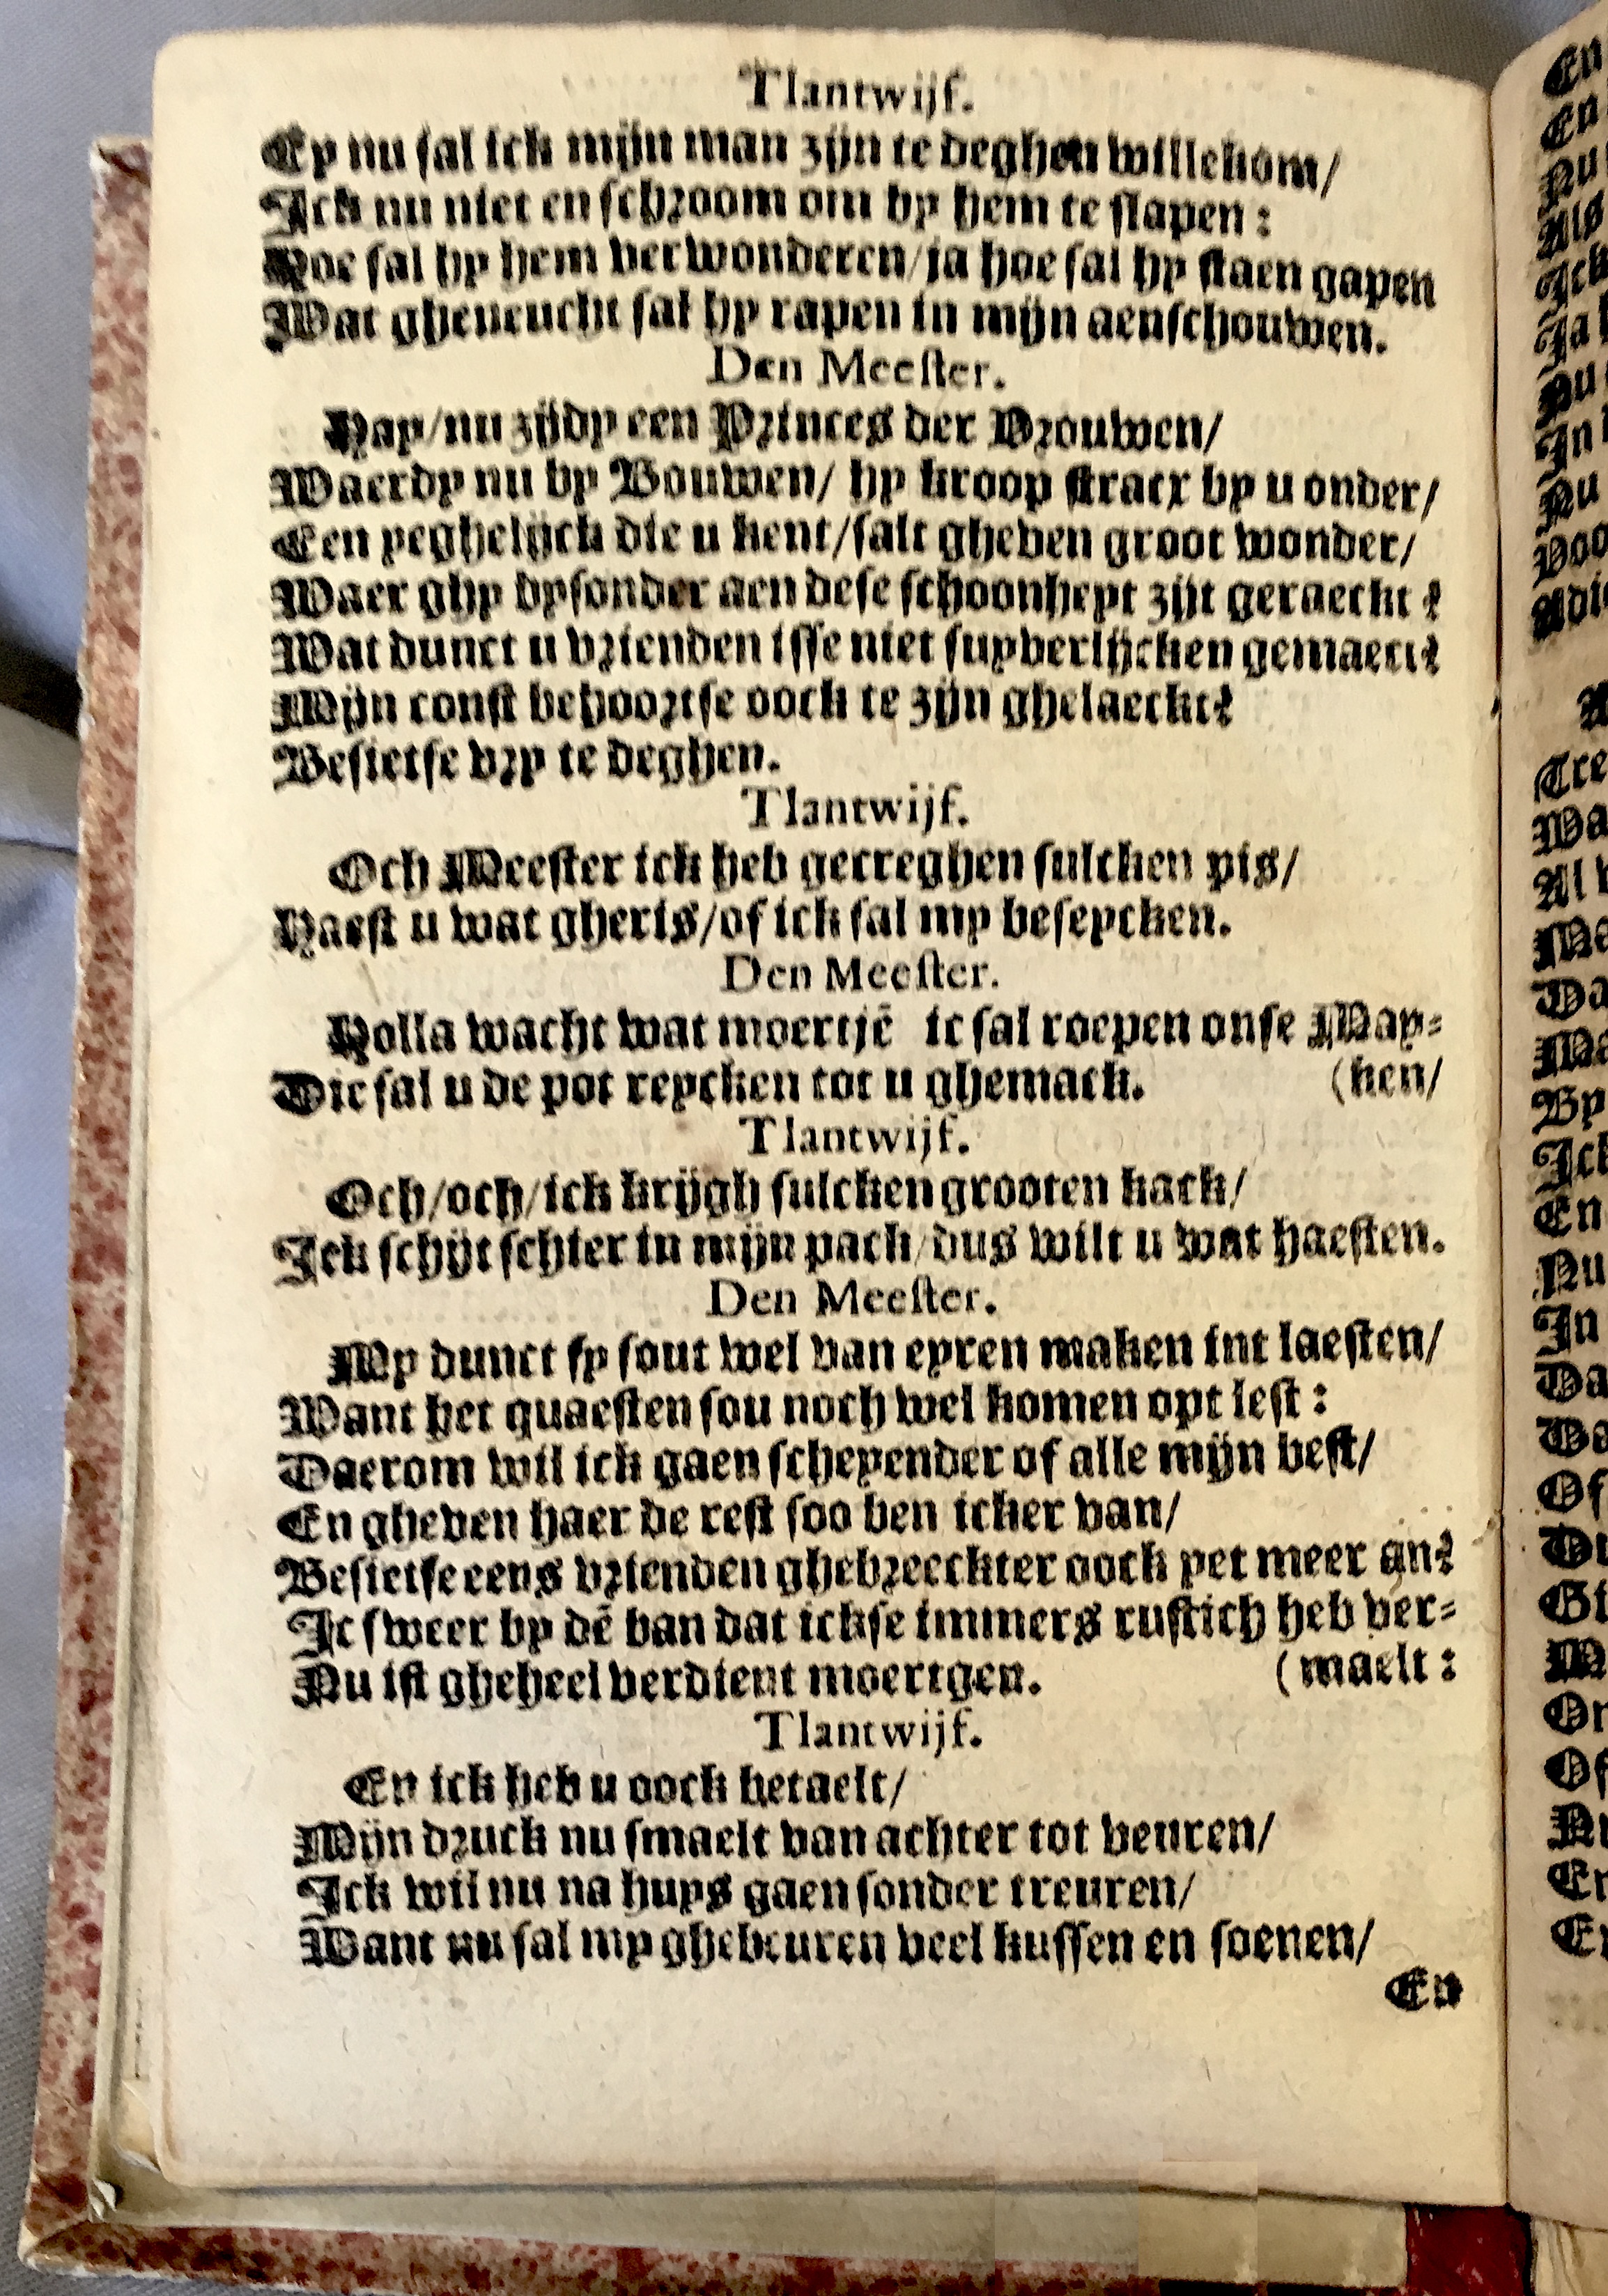 Tlantwijf.
Ey nu sal ick mijn man zijn te deghen willekom/
Ick nu niet en schroom om by hem te slapen:
Hoe sal hy hem verwonderen/ja hoe sal hy staen gapen
Wat gheneucht sal hy rapen in mijn aenschouwen.
Den Meester.
Hay/nu zijdy een Princes der Vrouwen/
Waerdy nu by Bouwen/ hy kroop stracx by u onder/
Een yeghelijck die u kent/salt gheven groot wonder/
Waer ghy bysonder aen dese schoonheyt zijt geraeckt?
Wat dunct u vrienden isse niet suyverlijcken gemaect?
Mijn const behoortse oock te zijn ghelaeckt?
Besietse vry te deghen.
Tlantwijf.
Och Meester ick heb gecreghen sulcken pis/
Haest u wat gheris/of ick sal my beseycken.
Den Meester.
Holla wacht wat moertjē ic sal roepen onse May-
Die sal u de pot reycken tot u ghemack. (ken/
Tlantwijf.
Och/och/ick krijgh sulcken grooten kack/
Ick schijt schier in mijn pack/dus wilt u wat haesten.
Den Meester.
My dunct sy sout wel van eyren maken int laesten/
Want het quaesten sou noch wel komen opt lest:
Daerom wil ick gaen scheyender of alle mijn best/
En gheven haer de rest soo ben icker van/
Besietse eens vrienden ghebreeckter oock yet meer an?
Ic sweer by dē ban dat ickse immers rustich heb ver-
Nu ist gheheel verdient moertgen. (maelt:
Tlantwijf.
En ick heb u oock betaelt/
Mijn druck nu smaelt van achter tot veuren/
Ick wil nu na huys gaen sonder treuren/
Want nu sal my ghebeuren veel kussen en soenen/
En